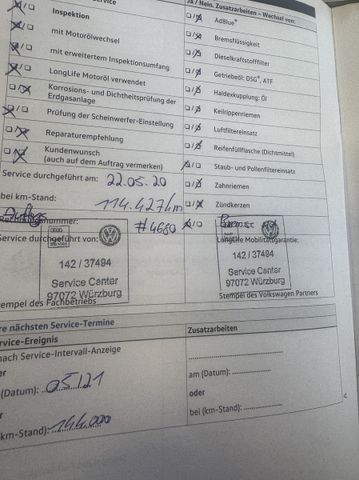 Service
Ja / Nein. Zusatzarbeiten – Wechsel von:
Inspektion
AdBlue®
mit Motorölwechsel
Bremsflüssigkeit
mit erweitertem Inspektionsumfang
Dieselkraftstofffilter
LongLife Motoröl verwendet
Getriebeöl: DSG®, ATF
Korrosions- und Dichtheitsprüfung der
Erdgasanlage
Haldexkupplung: Öl
Prüfung der Scheinwerfer-Einstellung
Keilrippenriemen
Reparaturempfehlung
Luftfiltereinsatz
Kundenwunsch
(auch auf dem Auftrag vermerken)
Reifenfüllflasche (Dichtmittel)
Staub- und Pollenfiltereinsatz
Service durchgeführt am: 22.05.20
Zahnriemen
bei km-Stand: 114.427km
Zündkerzen
nummer: #4680
Service durchgeführt von:
LongLife Mobilitätsgarantie:
142 / 37494
Service Center
97072 Würzburg
142 / 37494
Service Center
97072 Würzburg
Stempel des Fachbetriebs
Stempel des Volkswagen Partners
re nächsten Service-Termine
rvice-Ereignis
Zusatzarbeiten
nach Service-Intervall-Anzeige
er
am (Datum):
(Datum): 05/21
oder
er
bei (km-Stand):
km-Stand): 144.000